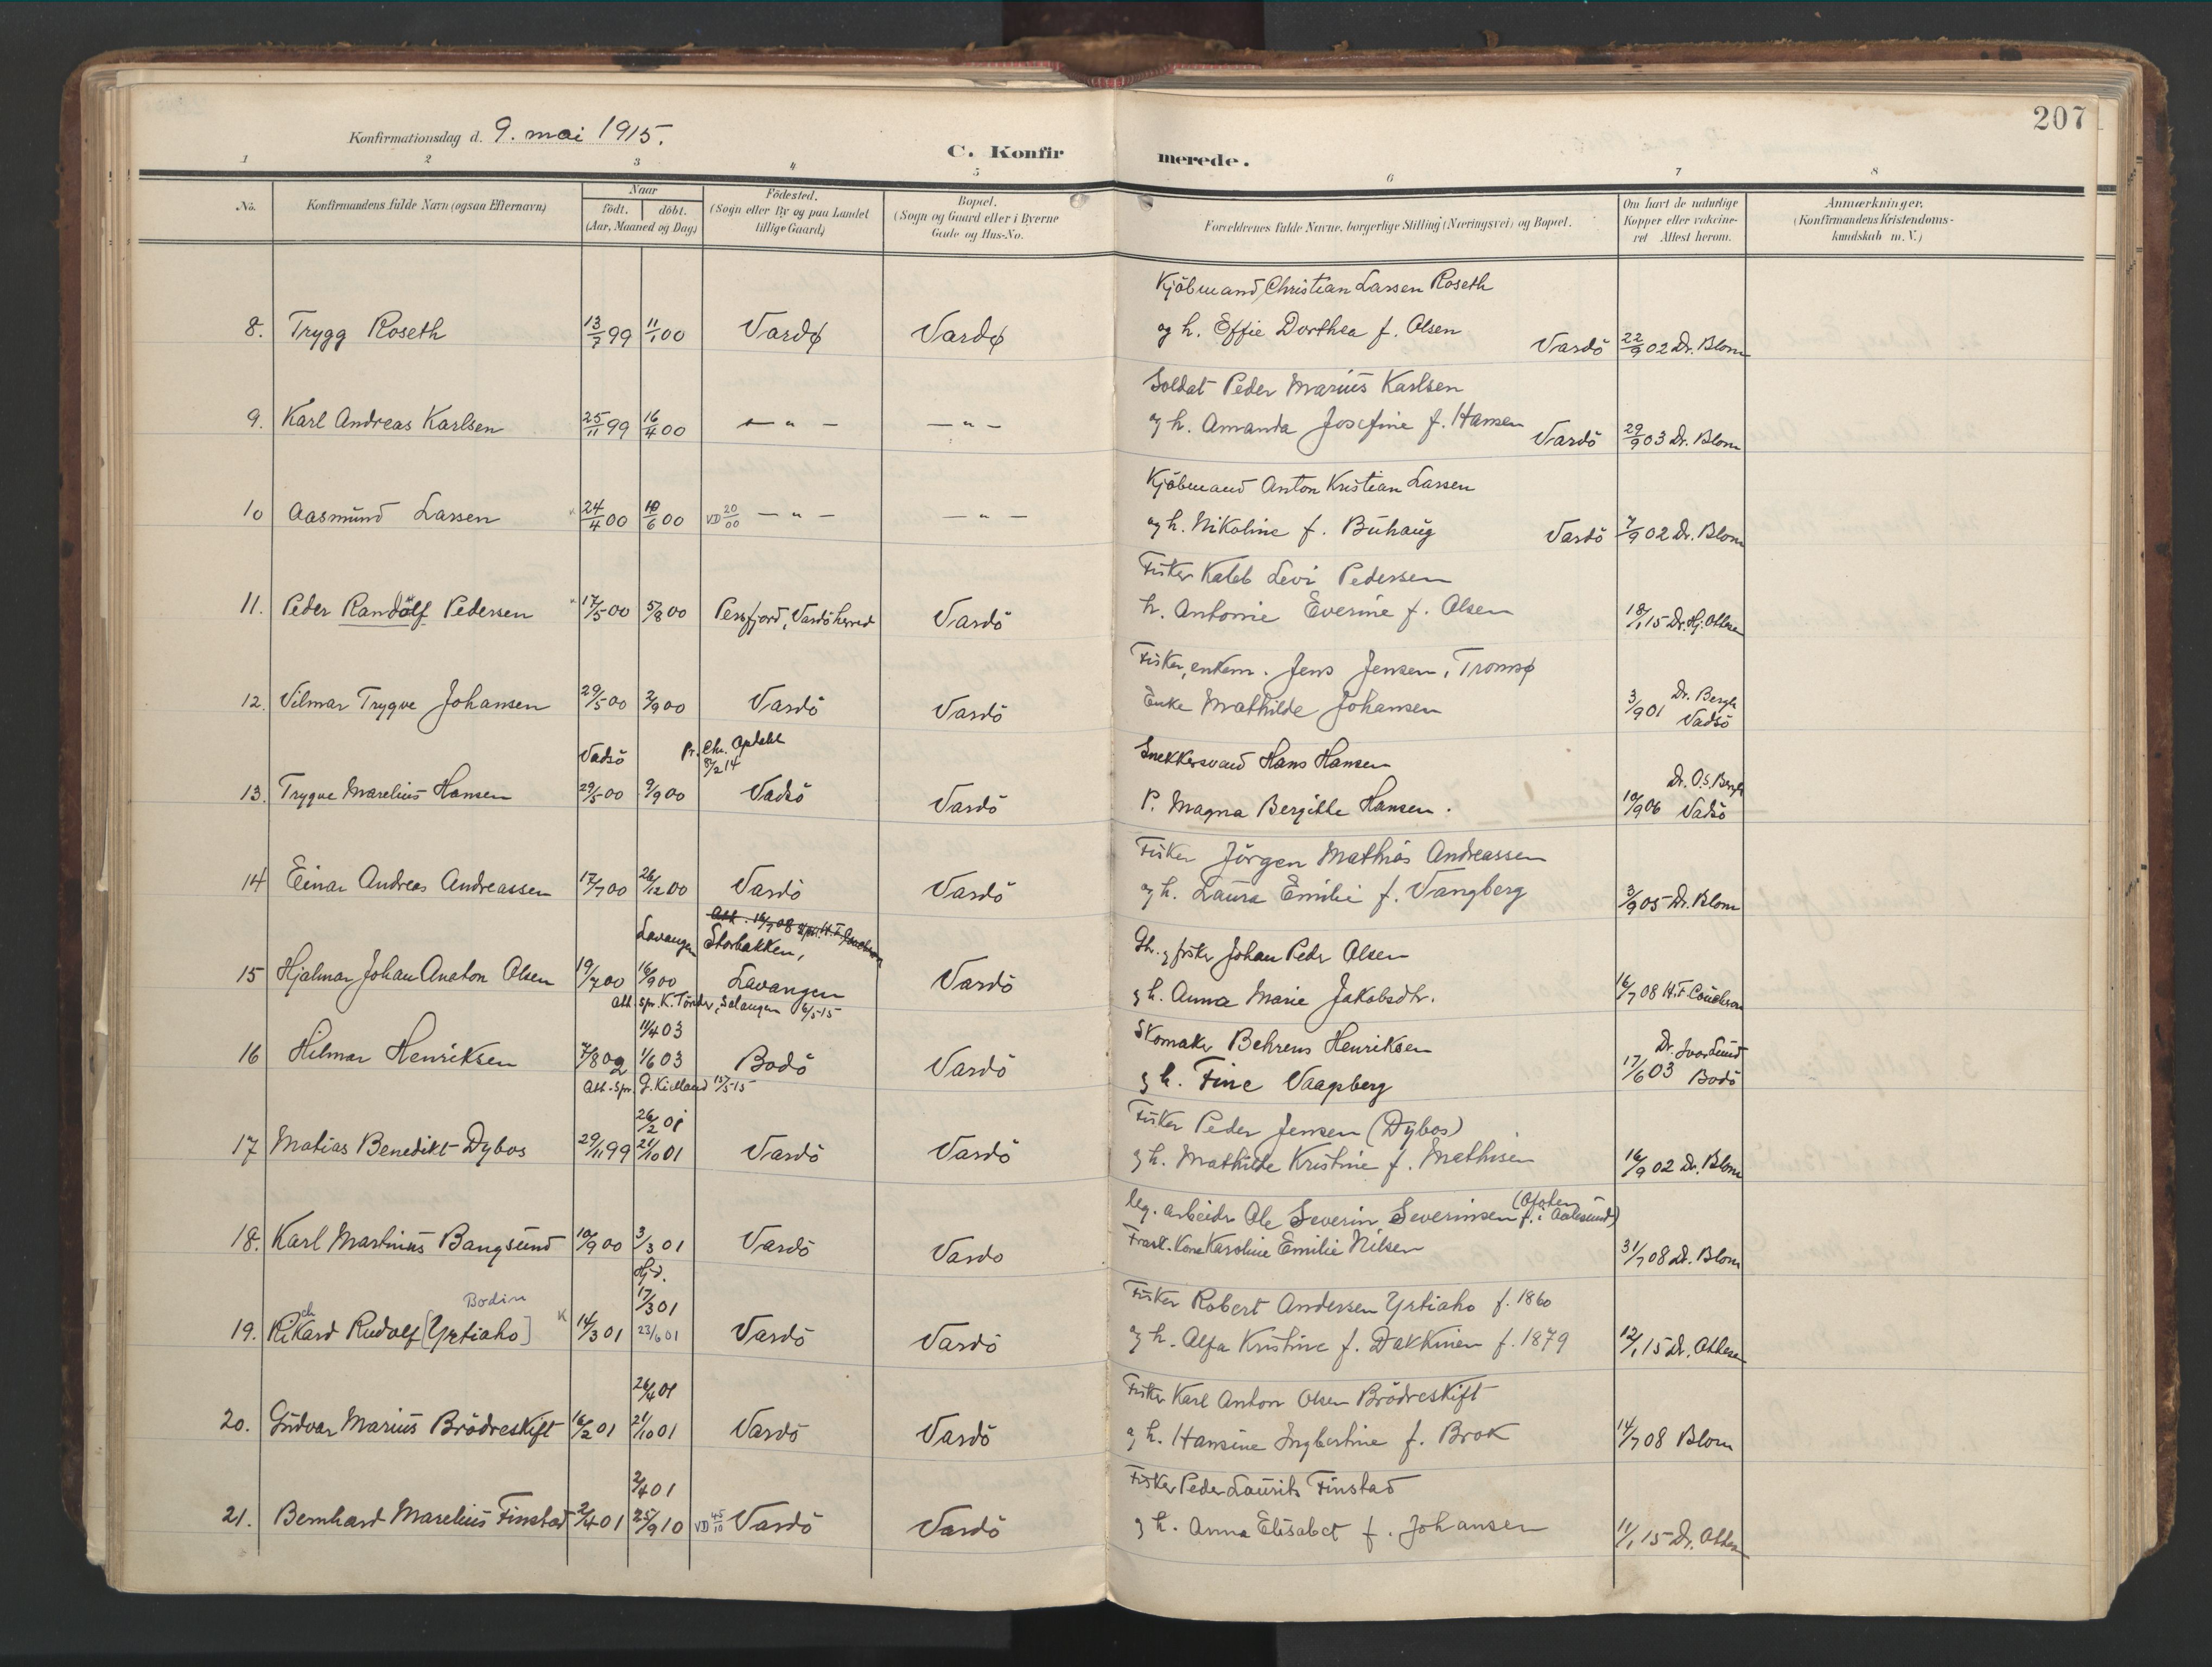 207
Konfirmationsdag d. 9. mai 1915.
C. Konfirmerede.
1 2 3 4 5 6 7 8
No.
Konfirmandens fulde Navn (ogsaa Efternavn)
Naar
født. døbt.
(Aar, Maaned og Dag)
Fødested.
(Sogn eller By og paa Landet
tillige Gaard)
Bopæl.
(Sogn og Gaard eller i Byerne
Gade og Hus-No.
Forældrenes fulde Navne, borgerlige Stilling (Næringsvei) og Bopæl.
Om havt de naturlige
Kopper eller vakcine-
ret Attest herom.
Anmærkninger.
(Konfirmandens Kristendoms-
kundskab m. V.)
Kjøbmand Christian Larsen Roseth
8. Trygg Roseth 13/7 99 11/1 00 Vardø Vardø og h. Effie Dorthea f. Olsen Vardö 22/9 02 Dr. Blom
Soldat Peder Marius Karlsen
9. Karl Andreas Karlsen 25/11 99 16/4 00 — " — — " — og h. Amanda Josefine f. Hansen Vardö 29/9 03 Dr. Blom
Kjöbmand Anton Kristian Larsen
10 Aasmund Larsen 24/4 00 10/6 00 VD 20/00 — " — — " — og h. Nikoline f. Buhaug Vardö 7/9 02 Dr. Blom
Fisker Kaleb Levi Pedersen
11. Peder Randolf Pedersen 17/5 00 5/8 00 Persfjord, Vardö herred Vardö h. Antonie Everine f. Olsen 18/1 15 Dr. Hj. Ottesen
Fisker, enkem. Jens Jensen, Tromsø
12. Vilmar Trygve Johansen 29/5 00 2/9 00 Vardö Vardö Enke Mathilde Johansen 3/9 01 Dr. Bergh Vadsö
Vadsö Pr. Chr. Opdahl 8/2 14
Snekkersvend Hans Hansen
13. Trygve Marelius Hansen 29/5 00 9/9 00 Vadsö Vardö P. Magna Bergitte Hansen. 10/9 06 Dr. O.S. Bergh Vadsö
Fisker Jörgen Mathias Andreassen
14 Einar Andreas Andreassen 17/7 00 26/12 00 Vardö Vardö og h. Laura Emilie f. Vangberg 3/9 05 Dr. Blom
Lavangen Storbakken,
Johan Peder Olsen
15 Hjalmar Johan Anaton Olsen 19/7 00 16/9 00 Lavangen Vardö g h. Anna Marie Jakobsdtr. 16/7 08
Att. spr. K. Tönder, Salangen 6/5-15
11/4 03
Skomaker Behrens Henriksen
16 Hilmar Henriksen 7/8 02 1/6 03 Bodö Vardö g h. Fine Vaagberg 17/6 03 Dr. Ivar Lund Bodö
Att. spr. G. Kielland 15/5-15
26/2 01
Fisker Peder Jensen (Dybos)
17 Matias Benedikt Dybos 29/11 99 21/10 01 Vardö Vardö g h. Mathilde Kristine f. Mathisen 16/9 02 Dr. Blom
arbeider Ole Severin Severinsen f. i Aalesund)
18. Karl Martinius Bangsund 10/9 00 3/3 01 Vardö Vardö Frask. Kone Karoline Emilie Nilsen 31/7 08 Dr. Blom
Hj-d. 17/3 01
Bodin
Fisker Robert Andersen Yrtiaho f. 1860
19. Rikard Rudolf [Yrtiaho] K 14/3 01 23/6 01 Vardö Vardö og h. Alfa Kristine f. Dakkinen f. 1879 12/1 15 Dr. Ottesen
26/4 01
Fisker Karl Anton Olsen Brödreskift
20. Gudvar Marius Brödreskift 16/2 01 21/10 01 Vardö Vardö og h. Hansine Ingbertine f. Brok 14/7 08 Blom
2/4 01
Fisker Peder Laurits Finstad
21. Bernhard Marelius Finstad 2/4 01 25/9 10 VD 45/10 Vardö Vardö g h. Anna Elisabet f. Johansen 11/1 15 Dr. Ottesen